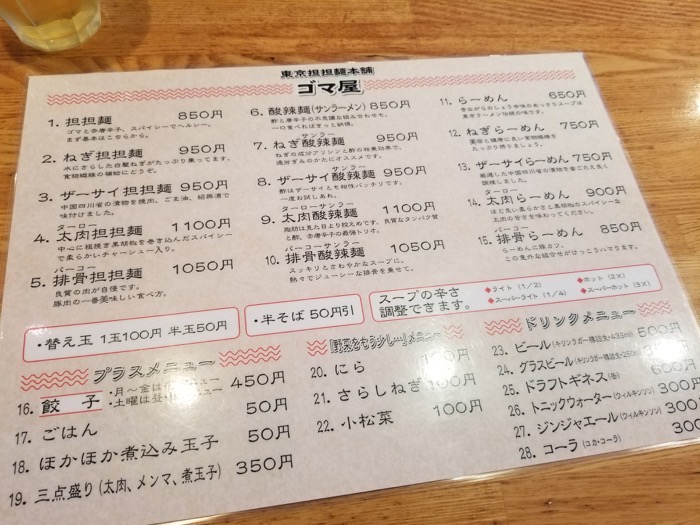 東京担担麺本舗
ゴマ屋
1. 担担麺 850円
ゴマと赤唐辛子、スパイシーでヘルシー。
まず基本はこちらから。
2. ねぎ担担麺 950円
水にさらした白髪ねぎがたっぷり乗ってます。
食物繊維の補給にどうぞ。
3. ザーサイ担担麺 950円
中国四川省の漬物を焼肉、ごま油、紹興酒で
味付けました。
ターロー
4. 太肉担担麺 1100円
中心に粗挽き黒胡椒を巻き込んだスパイシー
で柔らかいチャーシュー入り。
パーコー
5. 排骨担担麺 1050円
良質の肉が自慢です。
豚肉の一番美味しい食べ方。
6. 酸辣麺(サンラーメン) 850円
酢と唐辛子の不思議な組み合わせを。
一口食べればきっと納得。
サンラー
7. ねぎ酸辣麺 950円
ねぎの成分アリシンと酢の相乗効果で、
過労ぎみのかたにオススメです。
サンラー
8. ザーサイ酸辣麺 950円
酢はザーサイとも相性バッチリです。
一度お試しあれ。
ターローサンラー
9. 太肉酸辣麺 1100円
脂肪は見た目より控えめです。良質なタンパク質
と酢、赤唐辛子の最強トリオ。
パーコーサンラー
10. 排骨酸辣麺 1050円
スッキリとさわやかなスープに、
熱々でジューシーな排骨を乗せて。
11. らーめん 650円
昔ながらのしょう油味のあっさりスープは
東京ラーメン伝統の味です。
12. ねぎらーめん 750円
美容と健康に良い食物繊維を
たっぷり摂りましょう。
13. ザーサイらーめん 750円
厳選した中国四川省の漬物を当てた太具く
調理しました。
ターロー
14. 太肉らーめん 900円
ほど良い柔らかさと黒胡椒のスパイシーな
太肉の甘さを味わってください。
パーコー
15. 排骨らーめん 850円
らーめんに豚カツ。
この意外な組合せがけっこうハマります。
・替え玉 1玉100円 半玉50円
・半そば 50円引
スープの辛さ
調整できます。
◆ライト (1/2) ◆ホット (2X)
◆スーパーライト (1/4) ◆スーパーホット (3X)
プラスメニュー
16. 餃子 ：月〜金は ニュー
：土曜は昼 ニュー 450円
17. ごはん 50円
18. ほかほか煮込み玉子 50円
19. 三点盛り (太肉、メンマ、煮玉子) 350円
「野菜をもう少し…」メニュー
20. にら 100円
21. さらしねぎ 100円
22. 小松菜 100円
ドリンクメニュー
23. ビール 500円
24. グラスビール
25. ドラフトギネス(缶) 600円
26. トニックウォーター(ウィルキンソン) 300
27. ジンジャエール(ウィルキンソン) 300
28. コーラ(コカ・コーラ) 300